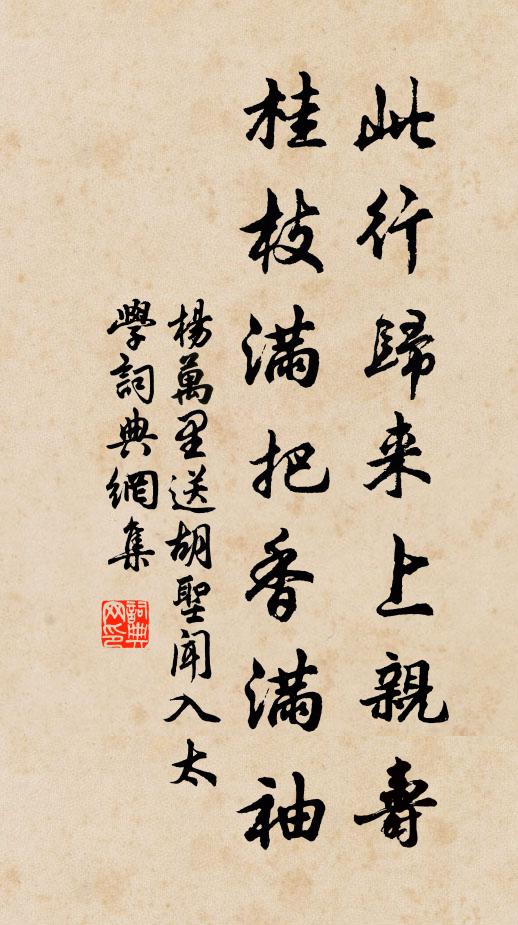 此行歸来上親壽
桂枝滿把香滿袖
楊萬里送胡聖聞入太
學詞典網集
詞典网印